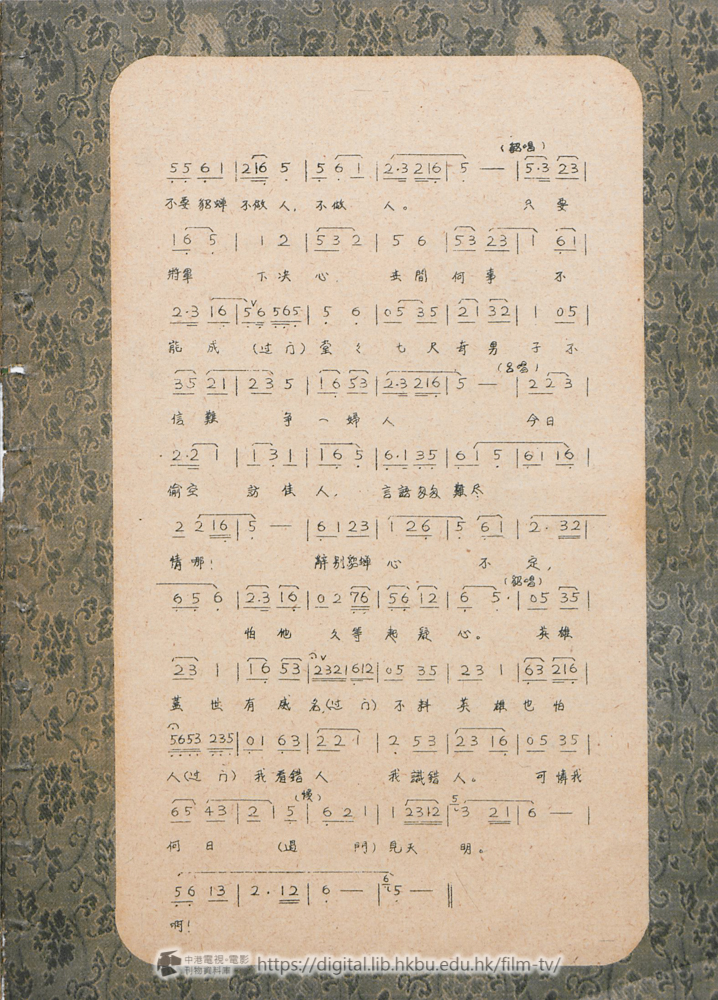 (貂唱)
5 5 6 1 | 2 1 6 5 | 5 6 1 | 2·3 2 1 6 | 5 — | 5·3 2 3 |
不要貂蟬不做人, 不做人。 只要
1 6 5 | 1 2 | 5 3 2 | 5 6 | 5 3 2 3 | 1 6 1 |
將軍 下决心 世間何事 不
2·3 1 6 | 5 6 5 6 5 | 5 6 | 0 5 3 5 | 2 1 3 2 | 1 0 5 |
能成 (过门) 堂々七尺奇男子不
(呂唱)
3 5 2 1 | 2 3 5 | 1 6 5 3 | 2·3 2 1 6 | 5 — | 2 2 3 |
信難 爭一婦人 今日
2·2 1 | 1 3 1 | 1 6 5 | 6·1 3 5 | 6 1 5 | 6 1 1 6 |
偷空 訪佳人, 言語多多難尽
2 2 1 6 | 5 — | 6 1 2 3 | 1 2 6 | 5 6 1 | 2· 3 2 |
情哪! 辭别貂蟬心 不定,
(貂唱)
6 5 6 | 2·3 1 6 | 0 2 7 6 | 5 6 1 2 | 6 5· | 0 5 3 5 |
怕他久等起疑心。 英雄
2 3 1 | 1 6 5 3 | 2 3 2 1 6 1 2 | 0 5 3 5 | 2 3 1 | 6 3 2 1 6 |
蓋世有威名(过门)不料英雄也怕
5 6 5 3 2 3 5 | 0 1 6 3 | 2 2 1 | 2 5 3 | 2 3 1 6 | 0 5 3 5 |
人(过门)我看錯人 我識錯人。 可憐我
(慢)
6 5 4 3 | 2 1 5 | 6 2 1 | 1 2 3 1 2 | 5 3 2 1 | 6 — |
何日 (過 門) 見天 明。
5 6 1 3 | 2·1 2 | 6 — | 6 5 — ||
啊!
中港電視·電影
刊物資料庫
https://digital.lib.hkbu.edu.hk/film-tv/